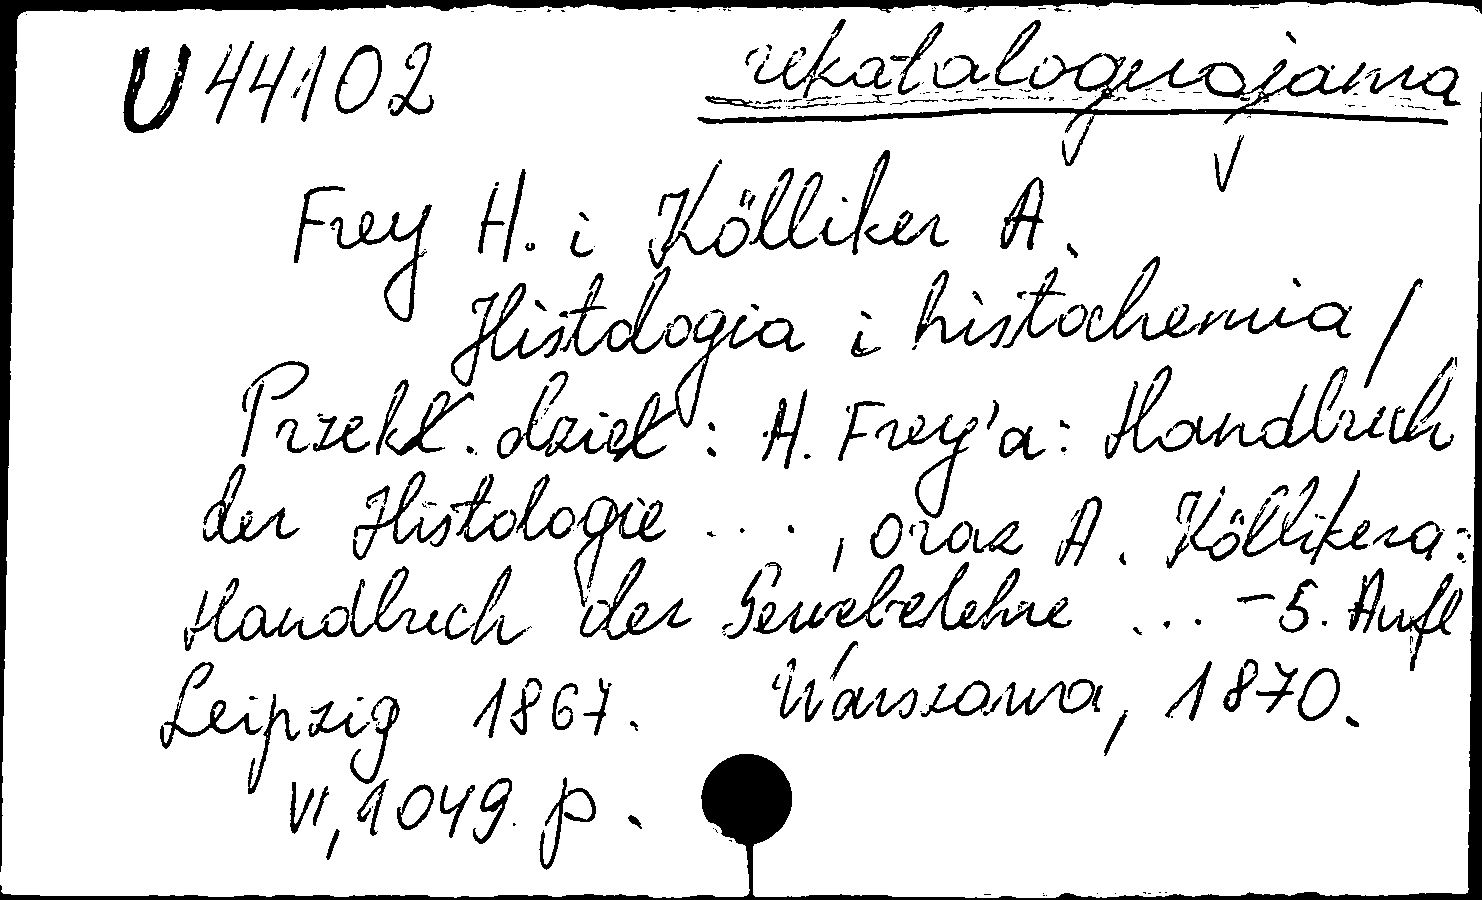 U 44102 rekataloguojama
Frey H. i Kölliker A.
Histologia i histochemia /
Przekł. dzieł : H. Frey'a : Handbuch
der Histologie ... , oraz A. Köllikera :
Handbuch der Gewebelehre ... – 5. Aufl
Leipzig 1867. Warszawa, 1870.
VI, 1049 p.